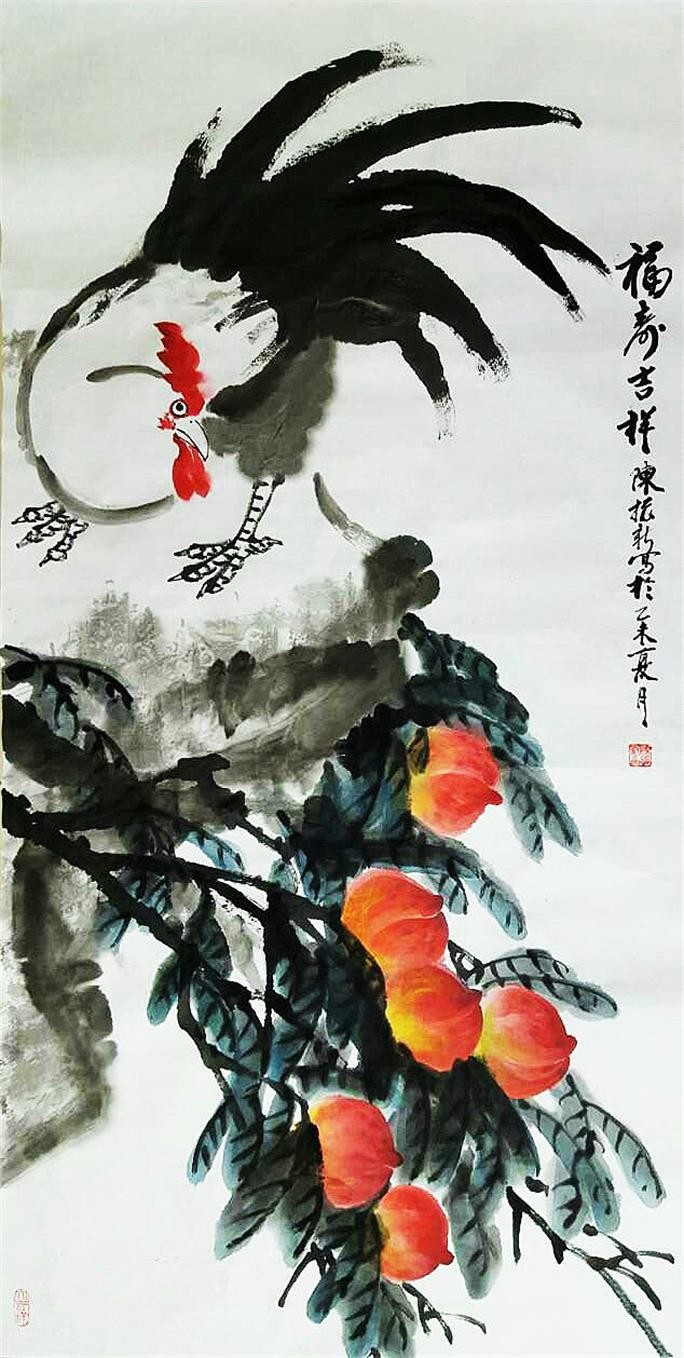 福寿吉祥 陳振新寫於乙未夏月